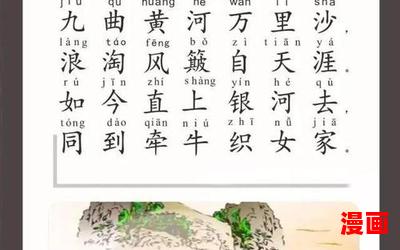 jiǔ qū huáng hé wàn lǐ shā
九曲黄河万里沙，
làng táo fēng bǒ zì tiān yá
浪淘风簸自天涯。
rú jīn zhí shàng yín hé qù
如今直上银河去，
tóng dào qiān niú zhī nǚ jiā
同到牵牛织女家。
漫画